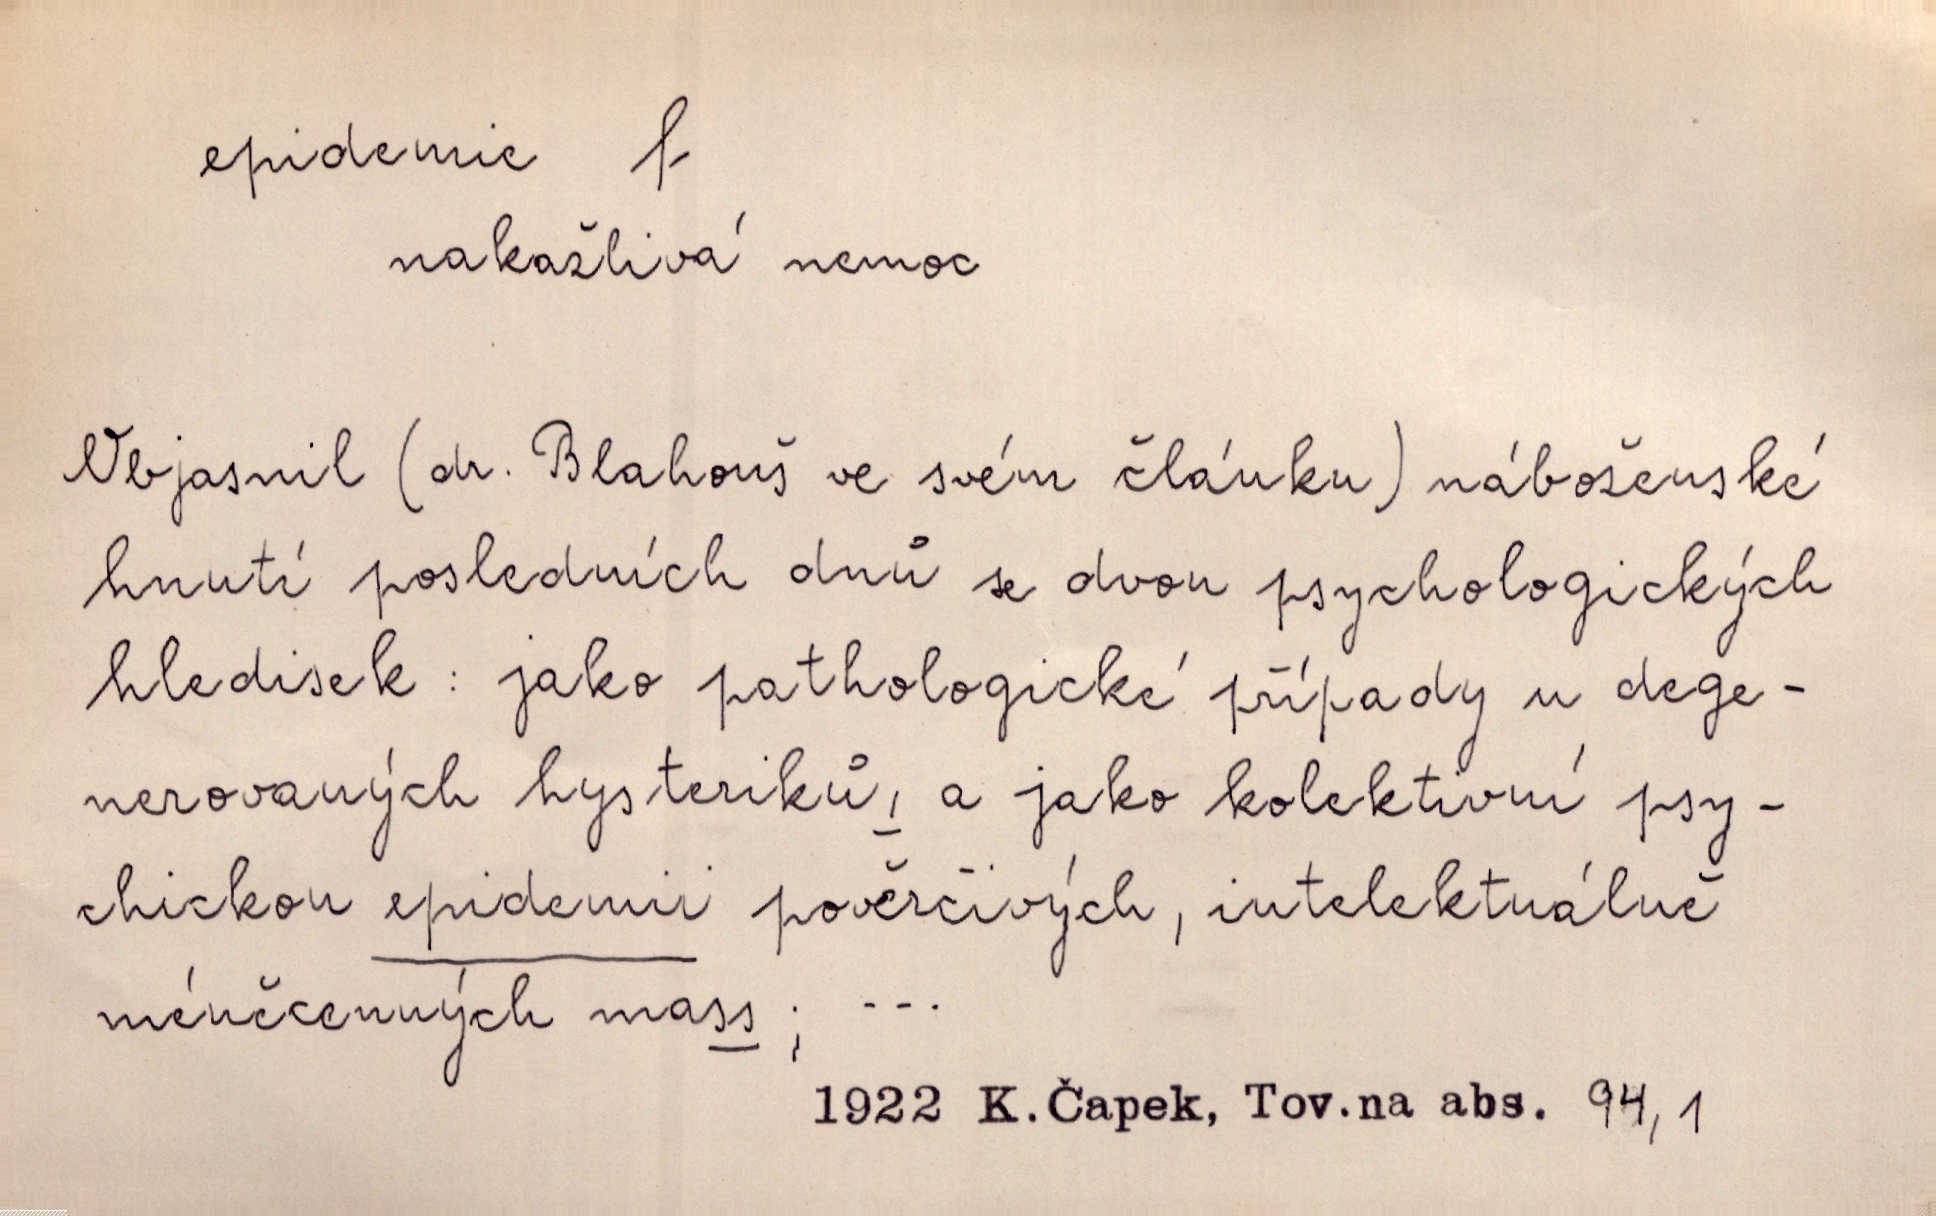 epidemie f
nakažlivá nemoc
Objasnil (dr. Blahouš ve svém článku) náboženské
hnutí posledních dnů se dvou psychologických
hledisek : jako pathologické případy u dege-
nerovaných hysteriků, a jako kolektivní psy-
chickou epidemii pověrčivých, intelektuálně
méněcenných mass ; ---
1922 K.Čapek, Tov.na abs. 94,1